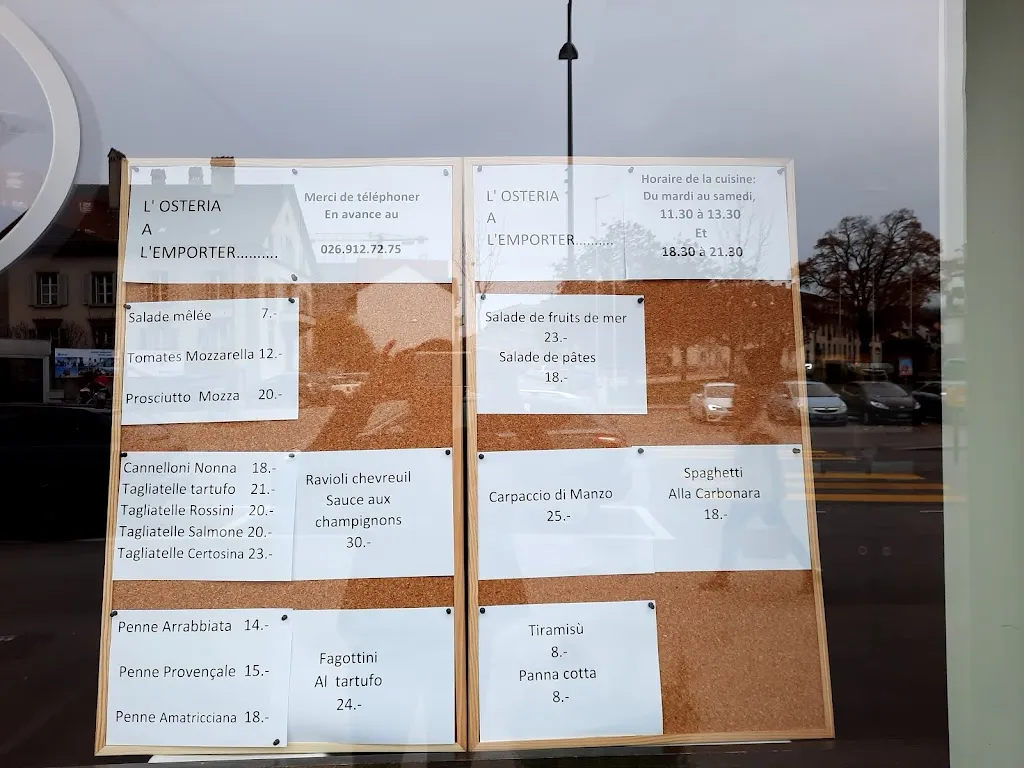 L' OSTERIA
A
L'EMPORTER..........
Merci de téléphoner
En avance au
026.912.72.75
Salade mêlée 7.-
Tomates Mozzarella 12.-
Prosciutto Mozza 20.-
Cannelloni Nonna 18.-
Tagliatelle tartufo 21.-
Tagliatelle Rossini 20.-
Tagliatelle Salmone 20.-
Tagliatelle Certosina 23.-
Ravioli chevreuil
Sauce aux
champignons
30.-
Penne Arrabbiata 14.-
Penne Provençale 15.-
Penne Amatricciana 18.-
Fagottini
Al tartufo
24.-
L' OSTERIA
A
L'EMPORTER..........
Horaire de la cuisine:
Du mardi au samedi,
11.30 à 13.30
Et
18.30 à 21.30
Salade de fruits de mer
23.-
Salade de pâtes
18.-
Carpaccio di Manzo
25.-
Spaghetti
Alla Carbonara
18.-
Tiramisù
8.-
Panna cotta
8.-